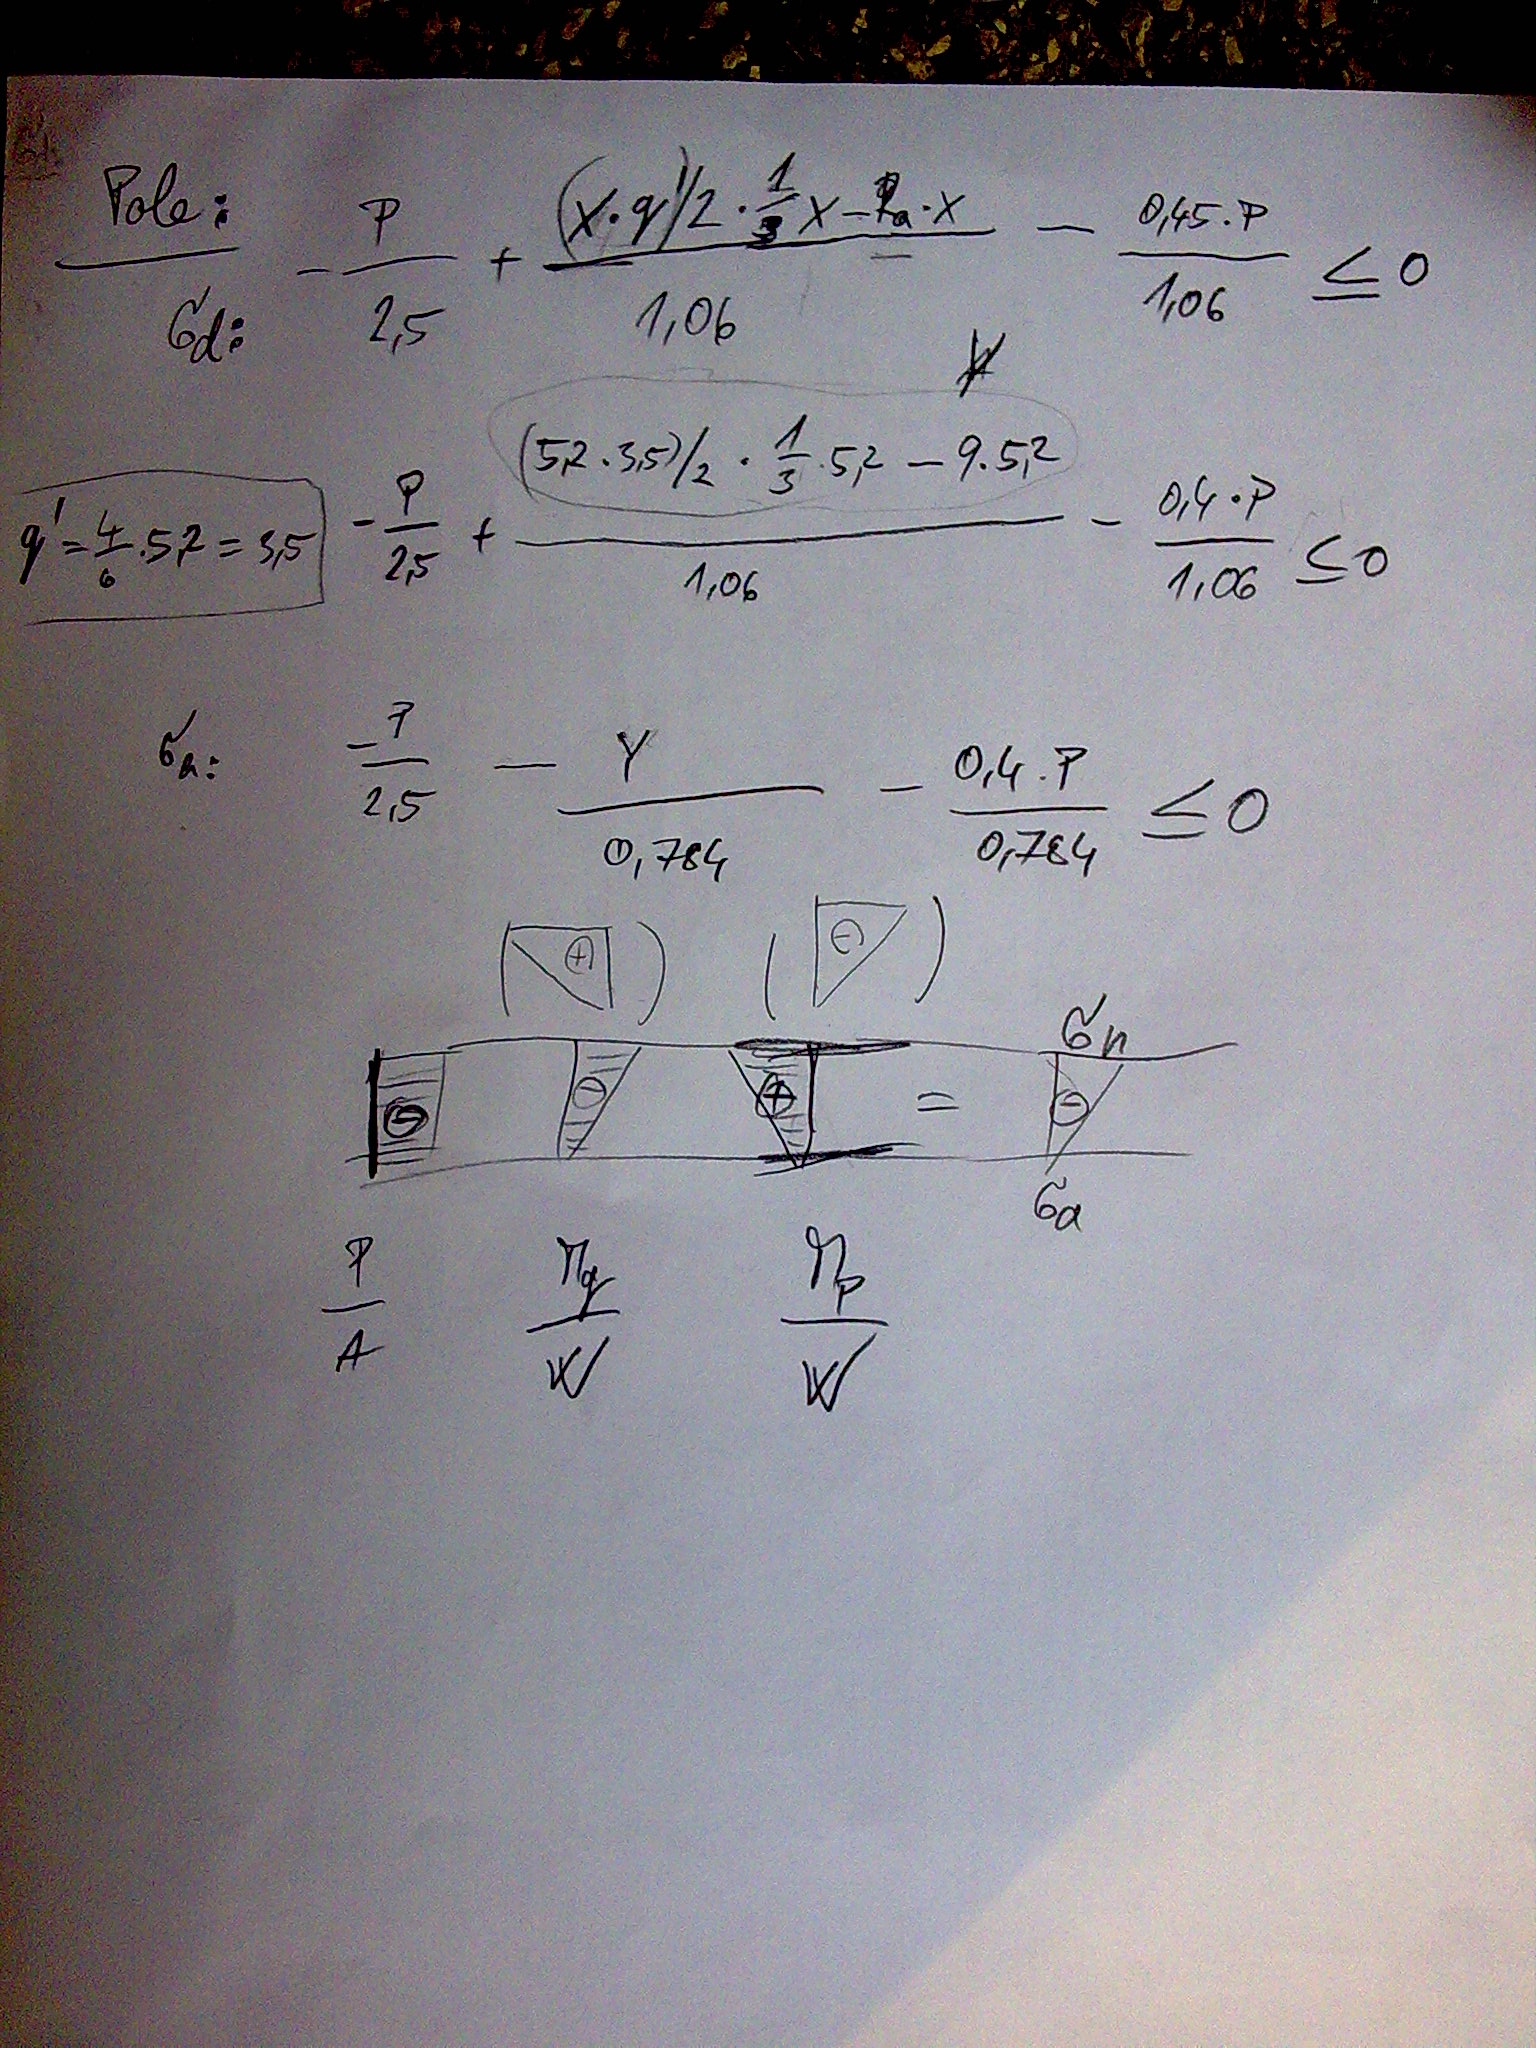 Pole:
σd: - P/2,5 + ((x·q')/2 · 1/3 x - Ra·x)/1,06 - 0,45·P/1,06 ≤ 0
q' = 4/6 · 5,2 = 3,5
- P/2,5 + ((5,2·3,5)/2 · 1/3 · 5,2 - 9·5,2)/1,06 - 0,4·P/1,06 ≤ 0
- P/2,5 - Y/0,784 - 0,4·P/0,784 ≤ 0
( + ) ( - )
- - + = -
P/A Mq/W Mp/W